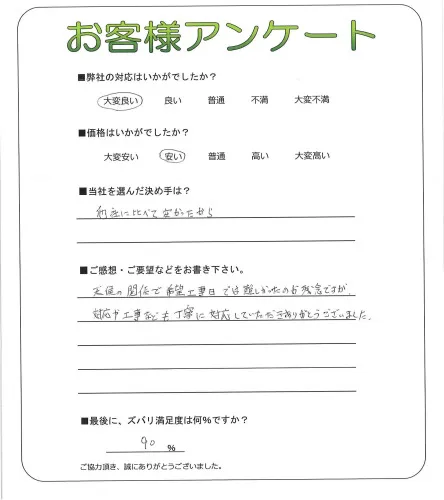 お客様アンケート
■弊社の対応はいかがでしたか？
大変良い 良い 普通 不満 大変不満
■価格はいかがでしたか？
大変安い 安い 普通 高い 大変高い
■当社を選んだ決め手は？
他社に比べて安かったから
■ご感想・ご要望などをお書き下さい。
天候の関係で希望工事日では難しかったのが残念ですが、
対応や工事なども丁寧に対応していただきありがとうございました。
■最後に、ズバリ満足度は何％ですか？
90 ％
ご協力頂き、誠にありがとうございました。